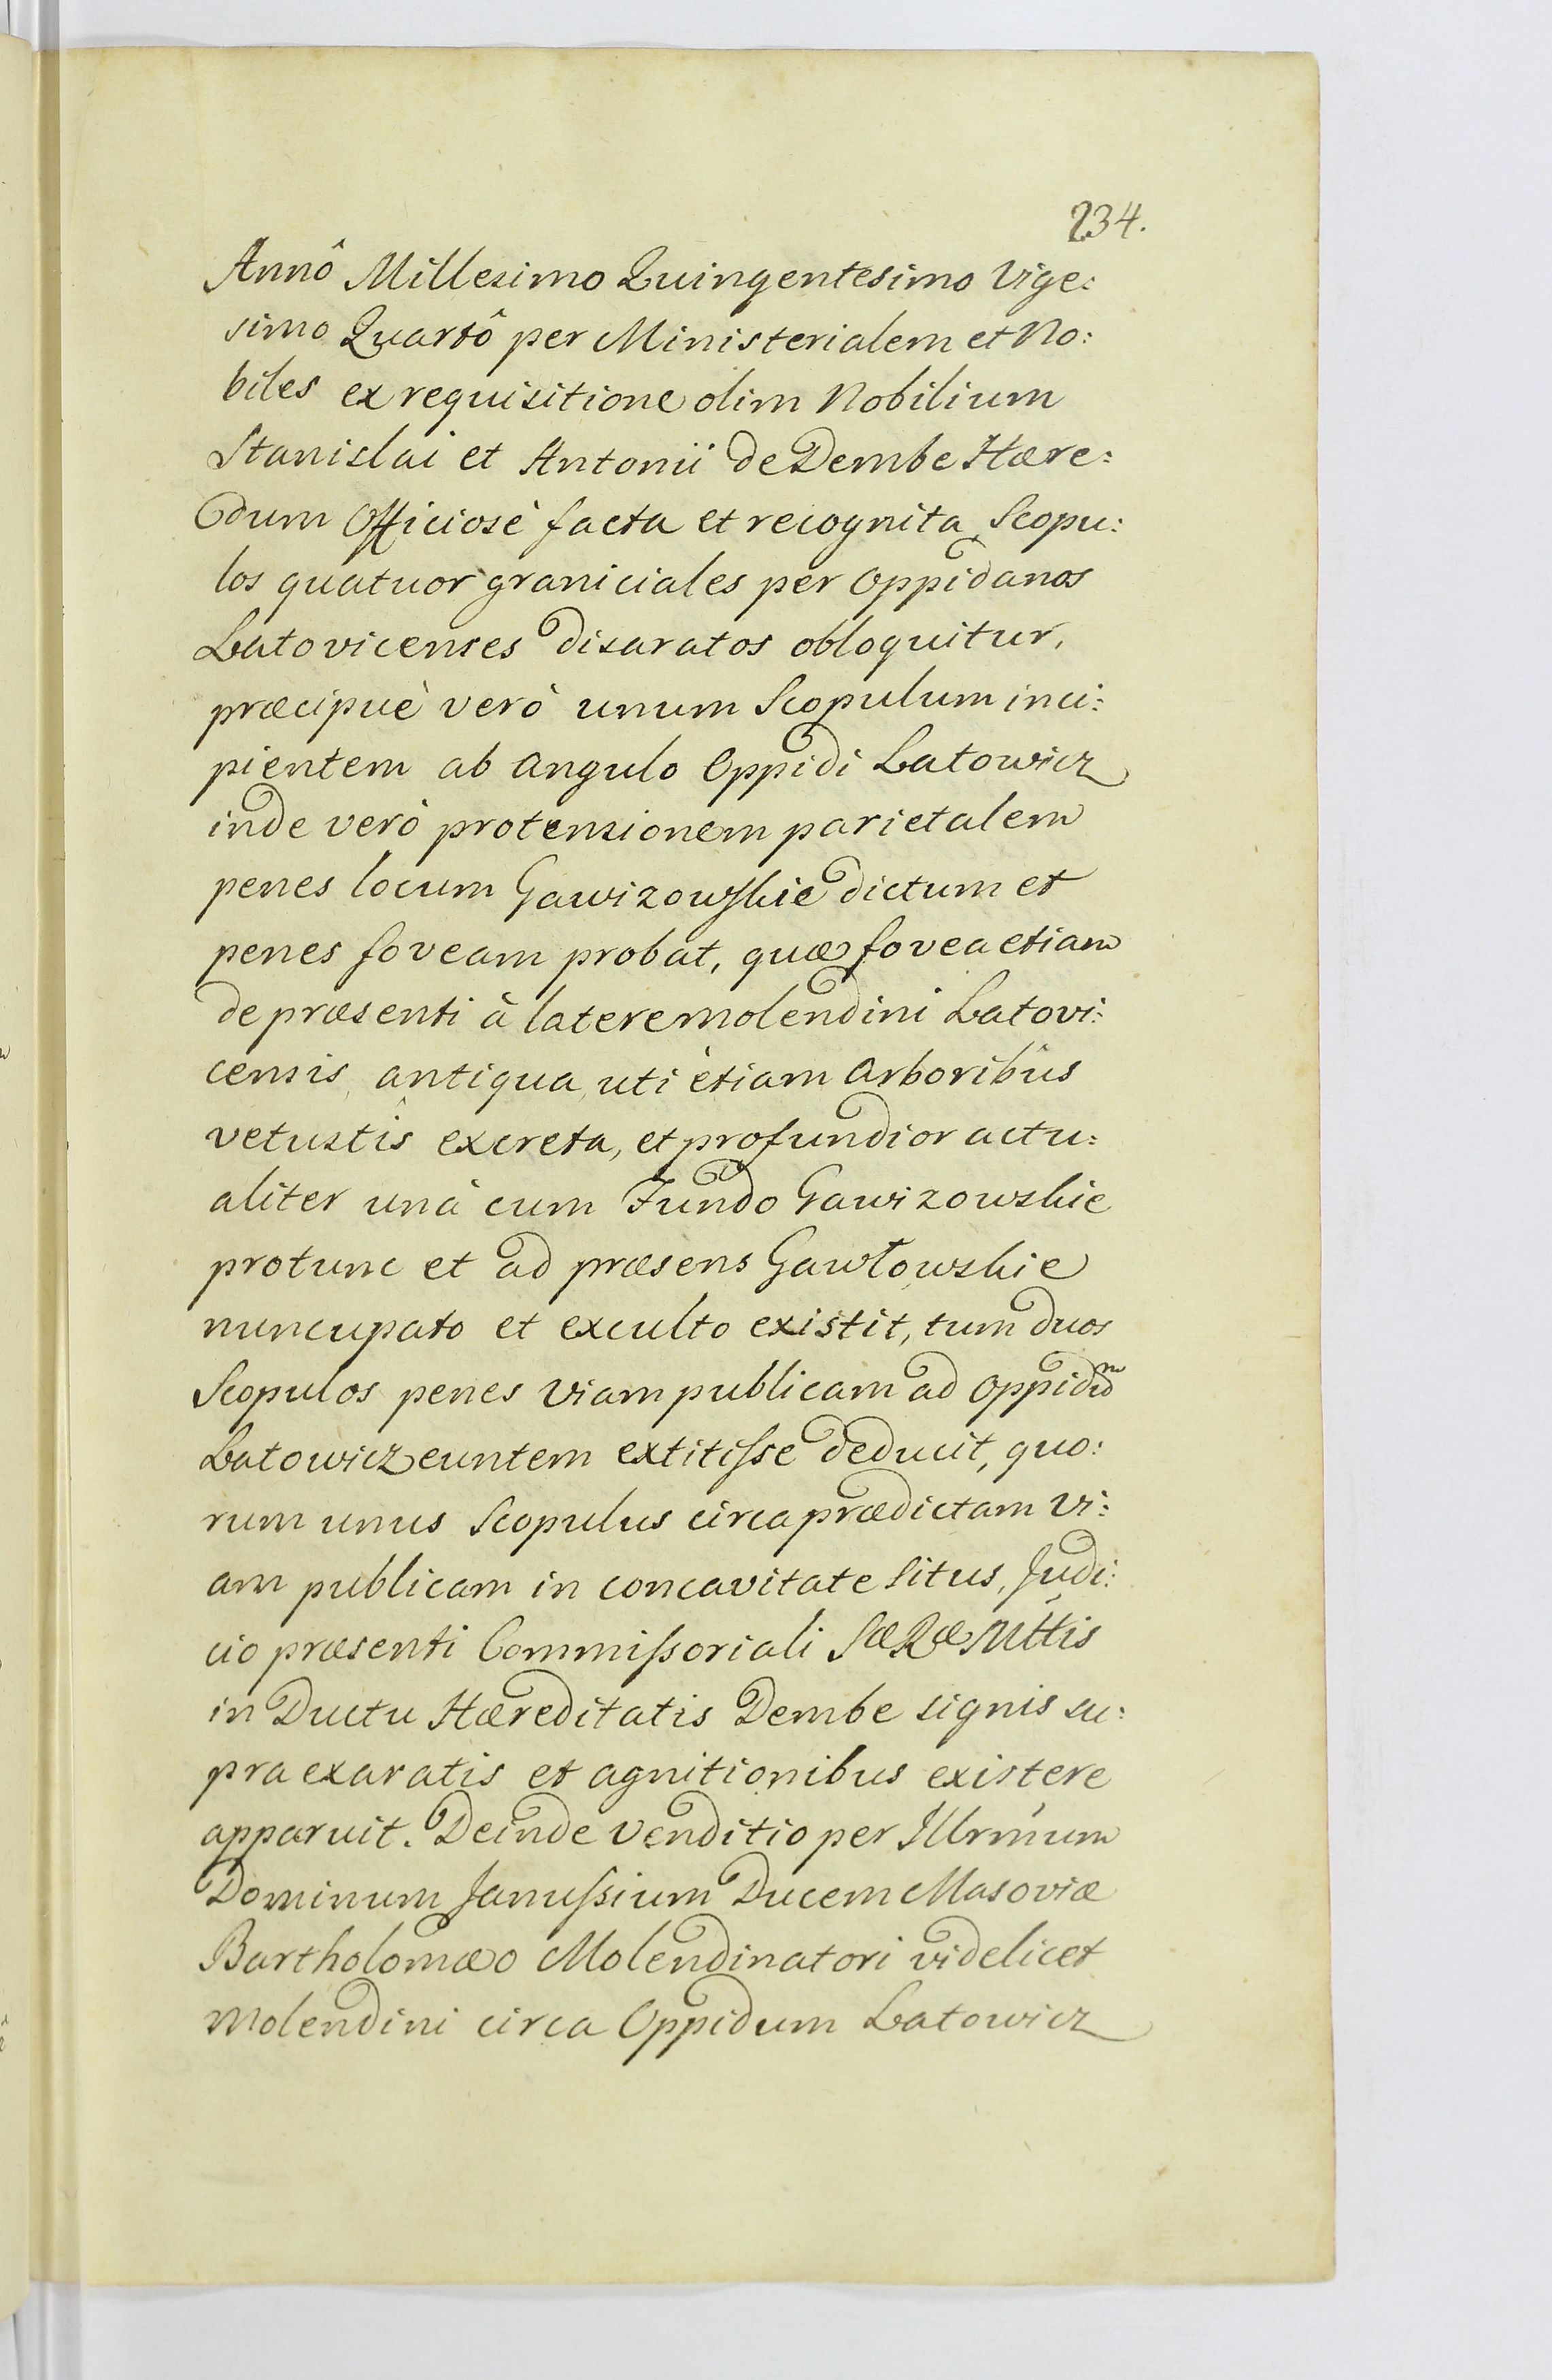 234.
Annô Millesimo Quingentesimo Vige:
simo Quartô per Ministerialem et No:
biles ex requisitione olim Nobilium
Stanislai et Antonii de Dembe Hære:
dum Officiosè facta et recognita, Scopu:
los quatuor graniciales per Oppidanos
Latovicenses disaratos obloquitur,
præcipuè verò unum Scopulum inci:
pientem ab angulo Oppidi Latowicz
inde verò protensionem parietalem
penes locum Gawizowskie dictum et
penes foveam probat, quæ fovea etiam
de præsenti à latere molendini Latovi:
censis, antiqua, uti etiam arboribûs
vetustîs excreta, et profundior actu:
aliter unà cum Fundo Gawizowskie
protunc et ad præsens Gawłowskie
nuncupato et exculto existit, tum duos
Scopulos penes viam publicam ad Oppidum
Latowicz euntem extitisse deducit, quo:
rum unus Scopulus circa prædictam vi:
am publicam in concavitate situs, Judi:
cio præsenti Commissoriali SæRæMttis
in Ductu Hæreditatis Dembe signis su:
pra exaratis et agnitionibus existere
apparuit. Deinde venditio per Illrmum
Dominum Janussium Ducem Masoviæ
Bartholomæo Molendinatori videlicet
Molendini circa Oppidum Latowicz